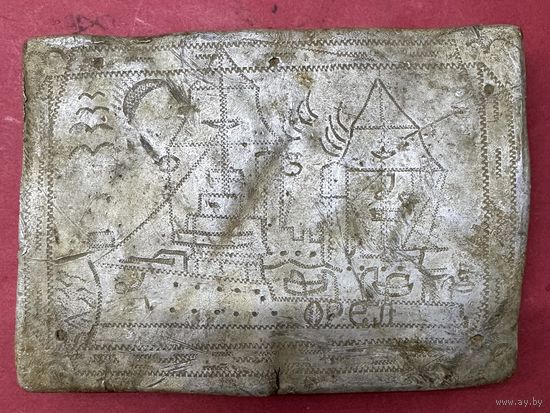 ОРЕЛ
www.ay.by